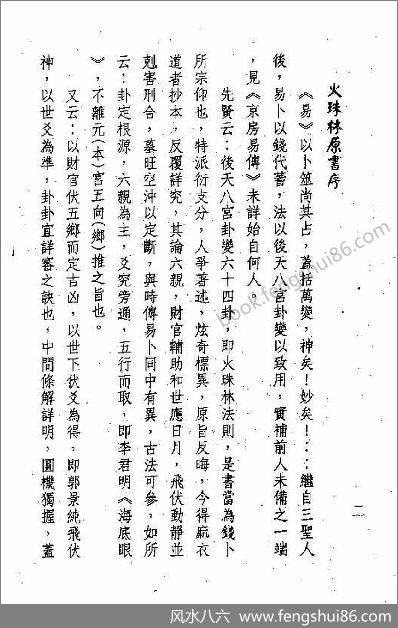 火珠林原書序
《易》以卜筮尚其占，蓋括萬變，神矣！妙矣！：：繼自三聖人
後，易卜以錢代蓍，法以後天八宮卦變以致用，實補前人未備之一端
，見《京房易傳》未詳始自何人。
先賢云：後天八宮卦變六十四卦，即火珠林法則，是書當為錢卜
所宗仰也，特派衍支分，人爭著述，炫奇標異，原旨反晦，今得麻衣
道者抄本，反覆詳究，其論六親，財官輔助和世應日月，飛伏動靜並
剋害刑合，墓旺空沖以定斷，與時傳易卜同中有異，古法可參，如所
云：卦定根源，六親為主，爻究旁通，五行而取，即李君明《海底眼
》，不離元（本）宮五向（鄉）推之旨也。
又云：以財官伏五鄉而定古凶，以世下伏爻為得，即郭景純飛伏
神，以世爻為準，卦卦宜詳審之訣也，中間條解詳明，圓機獨握，蓋
二
book.fengshui86.com
风水八六－www.fengshui86.com